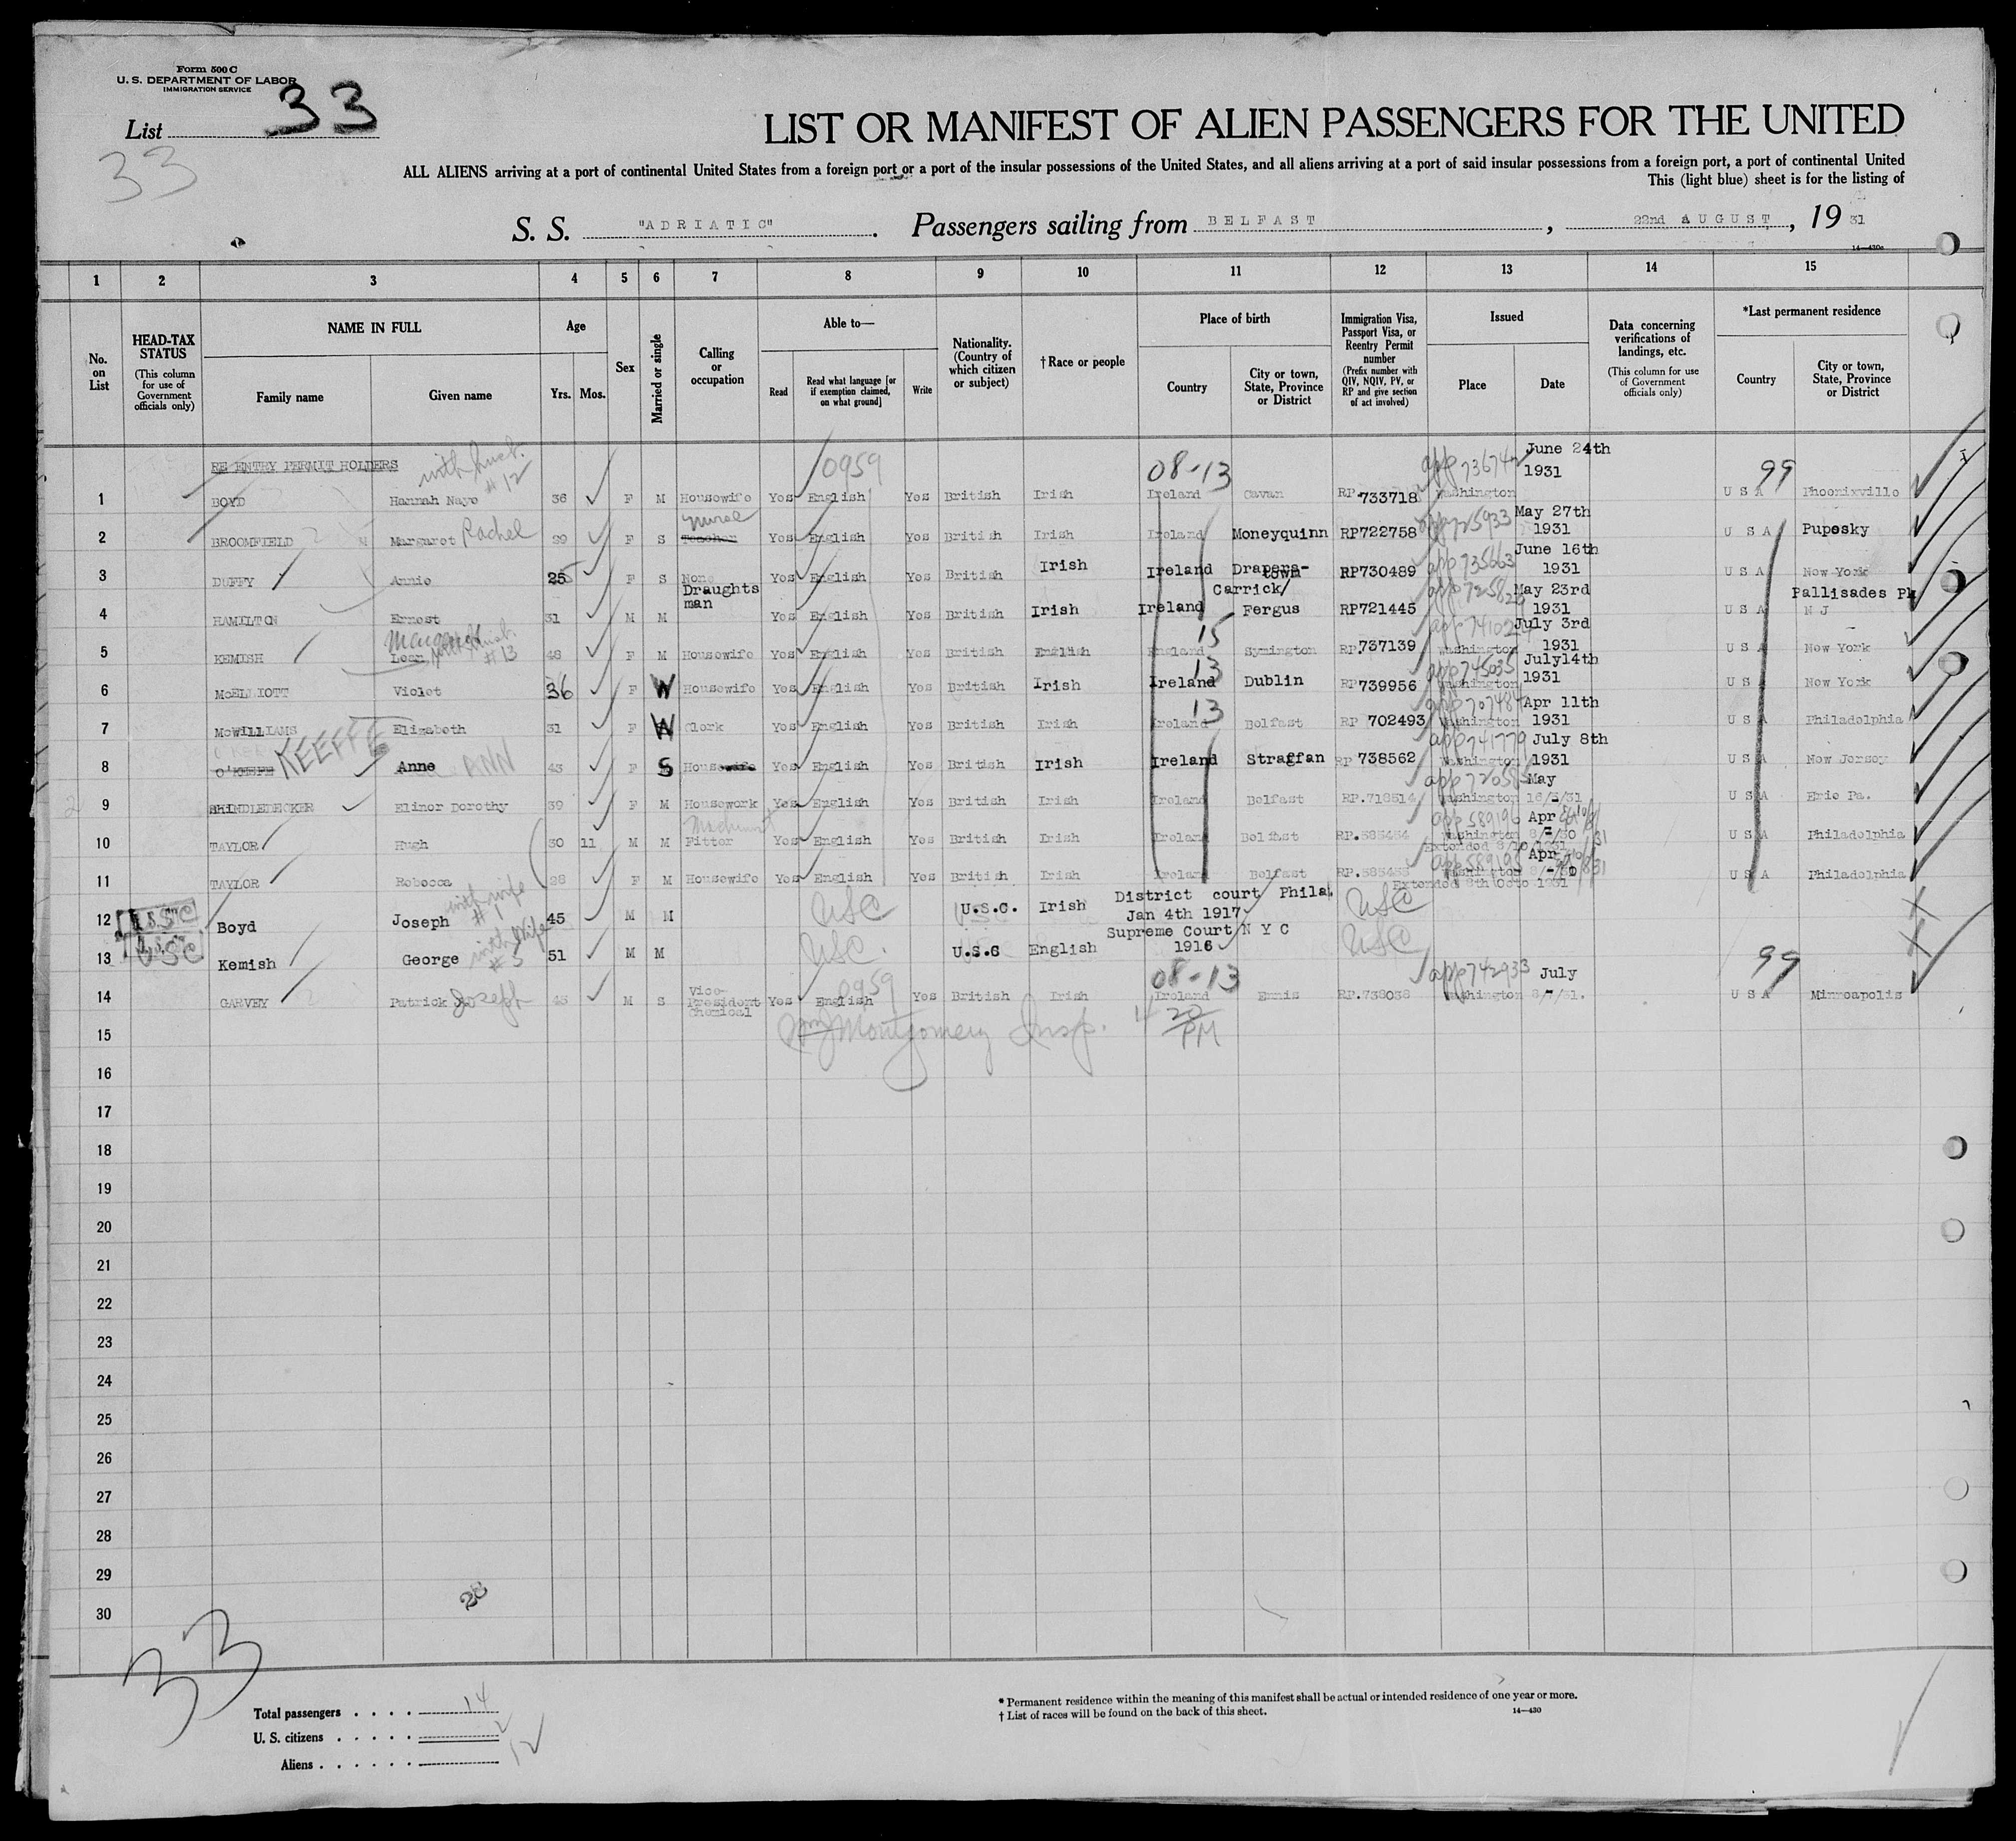 Form 500 C
U. S. DEPARTMENT OF LABOR
IMMIGRATION SERVICE
List 33
33
LIST OR MANIFEST OF ALIEN PASSENGERS FOR THE UNITED
ALL ALIENS arriving at a port of continental United States from a foreign port or a port of the insular possessions of the United States, and all aliens arriving at a port of said insular possessions from a foreign port, a port of continental United
This (light blue) sheet is for the listing of
S. S. "ADRIATIC". Passengers sailing from BELFAST, 22nd AUGUST, 1931
14—430c
1 2 3 4 5 6 7 8 9 10 11 12 13 14 15
No. on List
HEAD-TAX STATUS (This column for use of Government officials only)
NAME IN FULL Family name Given name
Age Yrs. Mos.
Sex
Married or single
Calling or occupation
Able to— Read Read what language [or if exemption claimed, on what ground] Write
Nationality. (Country of which citizen or subject)
†Race or people
Place of birth Country City or town, State, Province or District
Immigration Visa, Passport Visa, or Reentry Permit number (Prefix number with QIV, NQIV, PV, or RP and give section of act involved)
Issued Place Date
Data concerning verifications of landings, etc. (This column for use of Government officials only)
*Last permanent residence Country City or town, State, Province or District
RE ENTRY PERMIT HOLDERS with husb. # 12 0959 08-13 app 736747 June 24th 99
1 BOYD Hannah Naye 36 F M Housewife Yes English Yes British Irish Ireland Cavan RP 733718 Washington 1931 U S A Phoenixville
2 BROOMFIELD Margaret Rachel 29 F S Teacher Nurse Yes English Yes British Irish Ireland Moneyquinn RP722758 app 725933 May 27th 1931 U S A Puposky
3 DUFFY Annie 25 F S None Yes English Yes British Irish Ireland Drapers-town RP730489 app 735663 June 16th 1931 U S A New York
4 HAMILTON Ernest 31 M M Draughts man Yes English Yes British Irish Ireland Carrick/ Fergus RP721445 May 23rd 1931 U S A Pallisades Pk N J
5 KEMISH Leen Margaret with husb. # 13 48 F M Housewife Yes English Yes British English England 15 Symington RP 737139 Washington July 3rd 1931 U S A New York
6 McELLIOTT Violet 36 F W Housewife Yes English Yes British Irish Ireland 13 Dublin RP 739956 app 745035 Washington July14th 1931 U S A New York
7 McWILLIAMS Elizabeth 31 F W Clerk Yes English Yes British Irish Ireland 13 Belfast RP 702493 app 707484 Washington Apr 11th 1931 U S A Philadelphia
8 O'KEEFE KEEFFE Anne ANN 43 F S Housewife Yes English Yes British Irish Ireland Straffan RP 738562 app 741779 Washington July 8th 1931 U S A New Jersey
9 SHINDLEDECKER Elinor Dorothy 39 F M Housework Yes English Yes British Irish Ireland Belfast RP.718514 app 720585 Washington May 16/5/31 U S A Erie Pa.
10 TAYLOR Hugh 30 11 M M Fitter Machinist Yes English Yes British Irish Ireland Belfast RP.585454 app 589196 Washington Apr 8/-/30 Extended 8/10/1931 U S A Philadelphia
11 TAYLOR Rebecca 28 F M Housewife Yes English Yes British Irish Ireland Belfast RP.585455 app 589195 Washington Apr 8/-/30 Extended 8th Octo 1931 U S A Philadelphia
12 USC Boyd Joseph with wife # 1 45 M M USC U.S.C. Irish District court Phila. Jan 4th 1917 USC
13 USC Kemish George with Wife # 5 51 M M USC. U.S.C English Supreme Court N Y C 1916 USC
0959 08-13 99
14 GARVEY Patrick Joseph 45 M S Vice-President Chemical Yes English Yes British Irish Ireland Ennis RP.738038 app 742933 Washington July 8/7/31. U S A Minneapolis
15 Montgomery Insp. 20 PM
16
17
18
19
20
21
22
23
24
25
26
27
28
29
30
33
Total passengers . . . . 14
U. S. citizens . . . . . 2
Aliens . . . . . . 12
* Permanent residence within the meaning of this manifest shall be actual or intended residence of one year or more.
† List of races will be found on the back of this sheet.
14—430